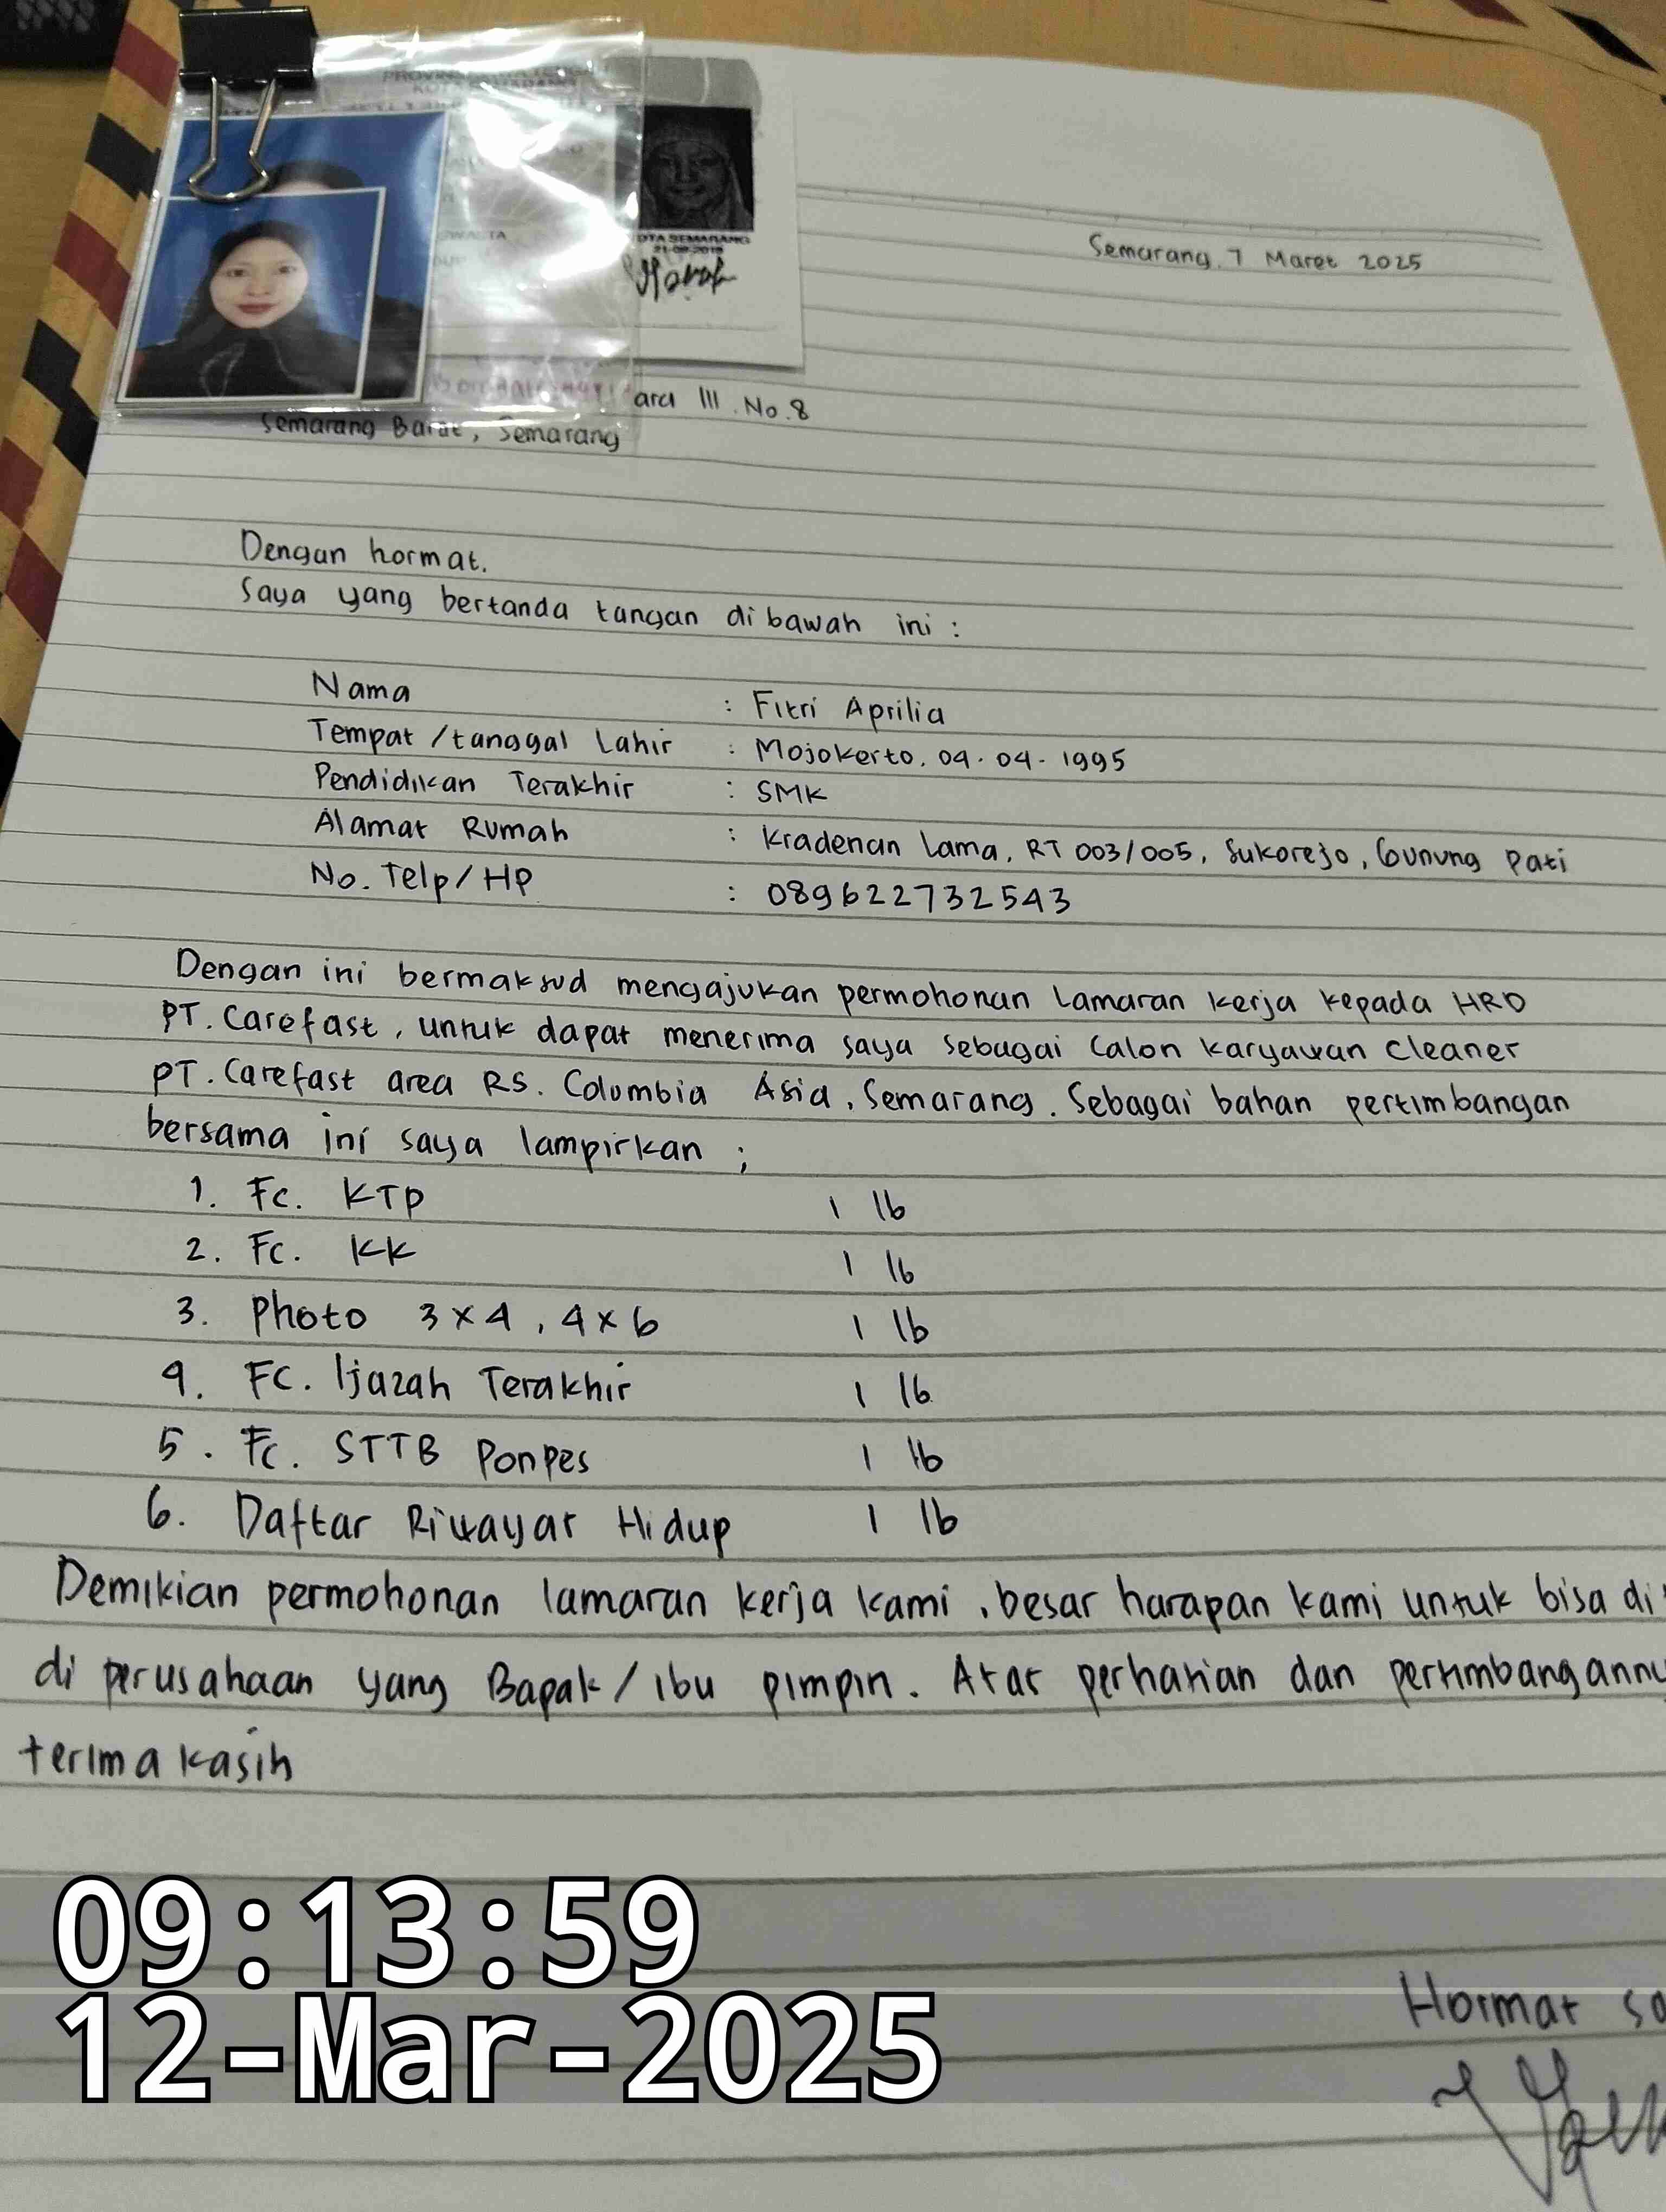 Semarang, 7 Maret 2025
OTA SEMARANG
ara III. No. 8
Semarang Barat, Semarang
Dengan hormat.
Saya yang bertanda tangan di bawah ini :
Nama : Fitri Aprilia
Tempat /tanggal Lahir : Mojokerto, 04-04-1995
Pendidikan Terakhir : SMK
Alamat Rumah : Kradenan Lama, RT 003/005, Sukorejo, Gunung Pati
No. Telp/HP : 089622732543
Dengan ini bermaksud mengajukan permohonan Lamaran Kerja kepada HRD
PT. Carefast, untuk dapat menerima saya sebagai Calon Karyawan Cleaner
PT. Carefast area RS. Columbia Asia, Semarang. Sebagai bahan pertimbangan
bersama ini saya lampirkan ;
1. Fc. KTP 1 lb
2. Fc. KK 1 lb
3. Photo 3x4, 4x6 1 lb
4. FC. Ijazah Terakhir 1 lb
5. Fc. STTB Ponpes 1 lb
6. Daftar Riwayat Hidup 1 lb
Demikian permohonan lamaran kerja kami, besar harapan kami untuk bisa di
di perusahaan yang Bapak/Ibu pimpin. Atas perhatian dan pertimbangann
terima kasih
Hormat sa
09:13:59
12-Mar-2025